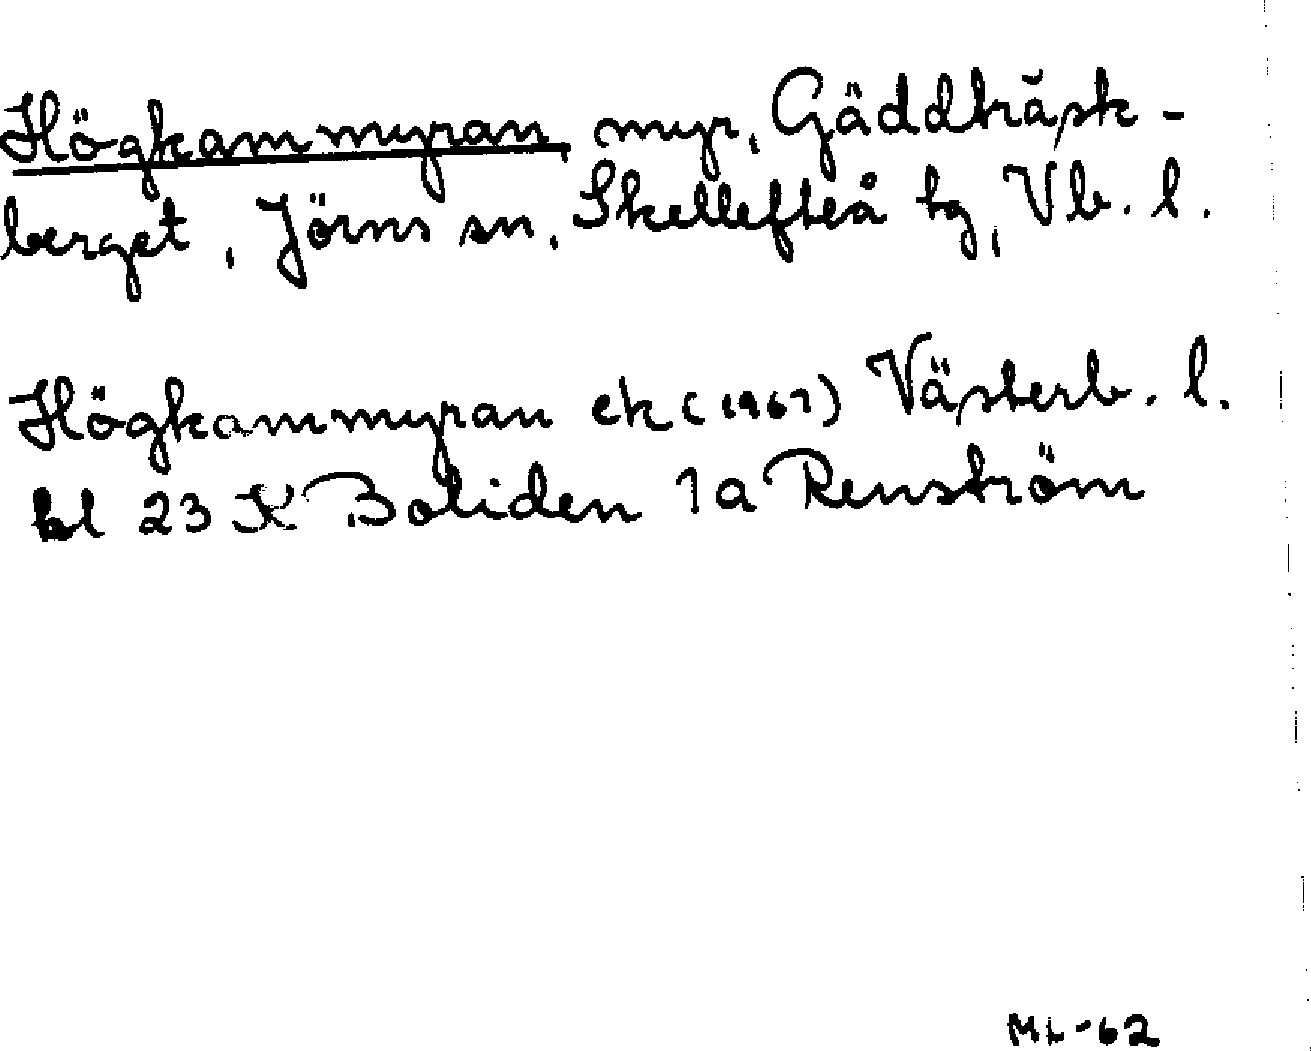 Högkammyran, myr, Gäddträsk-
berget, Jörns sn, Skellefteå tg, Vb. l.
Högkammyran ek (1967) Västerb. l.
bl 23 K Boliden 1a Renström
ML-62